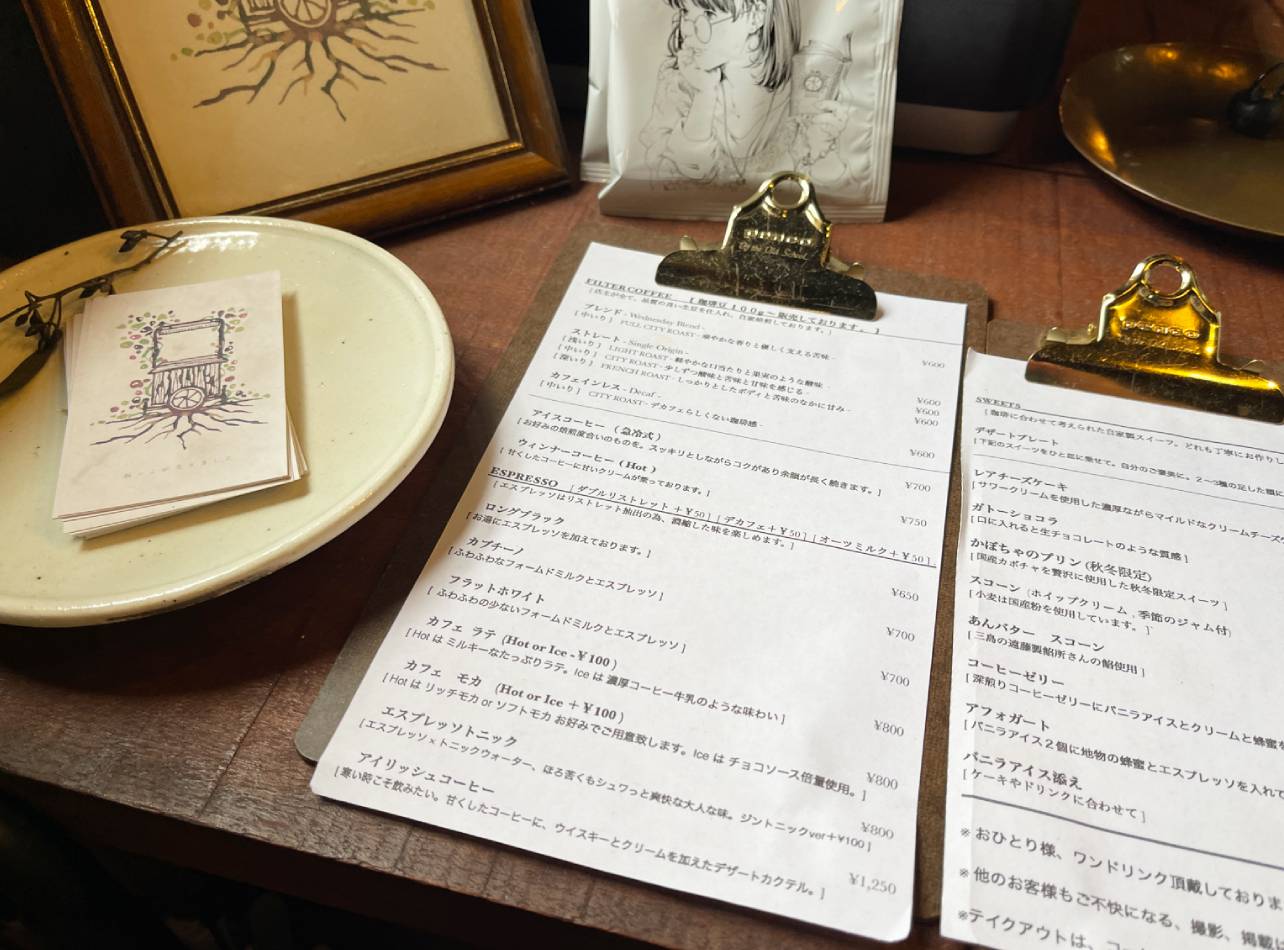 PENCO
FILTER COFFEE [ 珈琲豆100g〜販売しております。 ]
[ 店主が全て、品質の良い生豆を仕入れ、自家焙煎しております。]
ブレンド - Wednesday Blend -
[ 中いり ] FULL CITY ROAST - 華やかな香りと優しく支える苦味 -
¥600
ストレート - Single Origin -
[ 浅いり ] LIGHT ROAST - 軽やかな口当たりと果実のような酸味 -
¥600
[ 中いり ] CITY ROAST - 少しずつ酸味と苦味と甘味を感じる -
¥600
[ 深いり ] FRENCH ROAST - しっかりとしたボディと苦味のなかに甘み -
¥600
カフェインレス - Decaf -
[ 中いり ] CITY ROAST - デカフェらしくない珈琲感 -
¥600
アイスコーヒー ( 急冷式 )
[ お好みの焙煎度合いのものを。スッキリとしながらコクがあり余韻が長く続きます。]
¥700
ウィンナーコーヒー ( Hot )
[ 甘くしたコーヒーに甘いクリームが乗っております。]
¥750
ESPRESSO [ ダブルリストレット +¥50 ] [ デカフェ+¥50 ] [ オーツミルク+¥50 ]
[ エスプレッソはリストレット抽出の為、濃縮した味を楽しめます。]
ロングブラック
[ お湯にエスプレッソを加えております。]
¥650
カプチーノ
[ ふわふわなフォームドミルクとエスプレッソ ]
¥700
フラットホワイト
[ ふわふわの少ないフォームドミルクとエスプレッソ ]
¥700
カフェ ラテ (Hot or Ice -¥100 )
[ Hot は ミルキーなたっぷりラテ。Ice は 濃厚コーヒー牛乳のような味わい ]
¥800
カフェ モカ (Hot or Ice +¥100 )
[ Hot は リッチモカ or ソフトモカ お好みでご用意致します。Ice は チョコソース倍量使用。]
¥800
エスプレッソトニック
[ エスプレッソ × トニックウォーター、ほろ苦くもシュワっと爽快な大人な味。ジントニックver+¥100 ]
¥800
アイリッシュコーヒー
[ 寒い時こそ飲みたい。甘くしたコーヒーに、ウイスキーとクリームを加えたデザートカクテル。]
¥1,250
PENCO
SWEETS
[ 珈琲に合わせて考えられた自家製スイーツ。どれも丁寧にお作りし
デザートプレート
[ 下記のスイーツをひと皿に乗せて。自分のご褒美に。2〜3種の
レアチーズケーキ
[ サワークリームを使用した濃厚ながらマイルドなクリームチーズ
ガトーショコラ
[ 口に入れると生チョコレートのような質感 ]
かぼちゃのプリン (秋冬限定)
[ 国産カボチャを贅沢に使用した秋冬限定スイーツ ]
スコーン ( ホイップクリーム , 季節のジャム付)
[ 小麦は国産粉を使用しています。]
あんバター スコーン
[ 三島の遠藤製餡所さんの餡使用 ]
コーヒーゼリー
[ 深煎りコーヒーゼリーにバニラアイスとクリームと蜂蜜を
アフォガート
[ バニラアイス2個に地物の蜂蜜とエスプレッソを入れて
バニラアイス添え
[ ケーキやドリンクに合わせて ]
※ おひとり様、ワンドリンク頂戴しておりま
※ 他のお客様もご不快になる、撮影、掲載
※テイクアウトは、コー